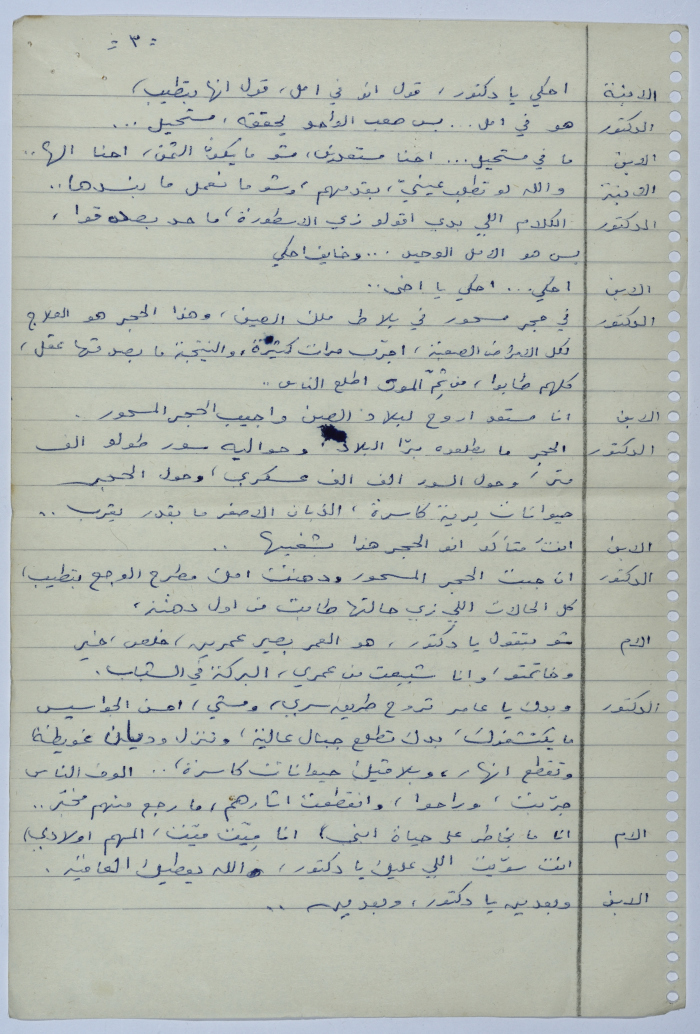 - ٣ -
الابنة احكي يا دكتور، قول انو في امل، قول انها بتطيب،
الدكتور هو في امل... بس صعب الواحد يحققه، مستحيل...
الابن ما في مستحيل... احنا مستعدين، شو ما يكون الثمن، احنا الها..
الابنة والله لو تطلب عينيّ، بقدمهم، وشو ما نعمل ما بنسدها..
الدكتور الكلام اللي بدي اقولو زي الاسطورة، ما حد بصدقوا،
بس هو الامل الوحيد... وخايف احكي
الابن احكي... احكي يا اخي..
الدكتور في حجر مسحور في بلاط ملك الصين، وهذا الحجر هو العلاج
لكل الامراض الصعبة، اجرّب مرات كثيرة، والنتيجة ما بصدقها عقل،
كلهم طابوا، من ثمّ الموت اطلع الناس..
الابن انا مستعد اروح لبلاد الصين واجيب الحجر المسحور.
الدكتور الحجر ما بطلعوه برّا البلاد، وحواليه سور طولو الف
متر، وحول السور الف الف عسكري، وحول الحجر
حيوانات برية كاسرة، الذبان الاصفر ما بقدر يقرب..
الابن انت متأكد انو الحجر هذا بشفيها..
الدكتور ان جبت الحجر المسحور ودهنت امك مطرح الوجع بتطيب،
كل الحالات اللي زي حالتها طابت من اول دهنة،
الام شو بتقول يا دكتور، هو العمر بصير عمرين، خلص، خير
وخاتمتو، وانا شبعت من عمري، البركة في الشباب.
الدكتور وبدك يا عامر تروح طريق سري، ومشي، احسن الجواسيس
ما يكتشفوك، بدك تطلع جبال عالية، وتنزل وديان غويطة
وتقطع انهار، وبلاقيك حيوانات كاسرة،.. الوف الناس
جرّبت، وراحوا، وانقطعت اثارهم، ما رجع منهم مخبّر..
الام انا ما بخاطر على حياة ابني، انا ميّت ميّت، المهم اولادي،
انت سوّيت اللي عليك يا دكتور، والله يعطيك العافية.
الابن وبعدين يا دكتور، وبعدين..